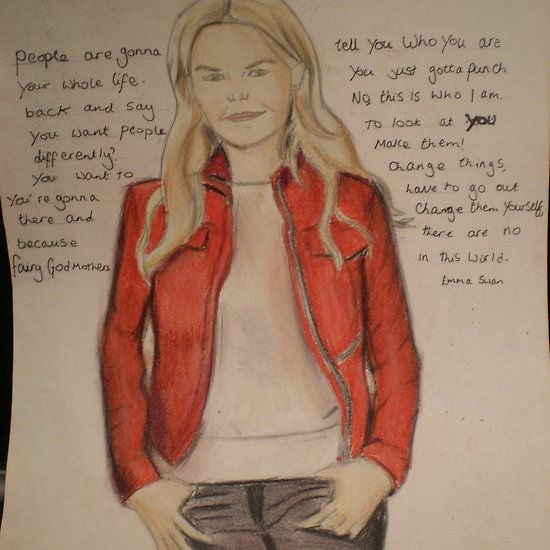 People are gonna tell you who you are
your whole life. You just gotta punch
back and say No, this is who I am.
You want people to look at you
differently? Make them!
You want to change things,
You're gonna have to go out
there and change them yourself,
because there are no
fairy GodMothers in this world.
Emma Swan